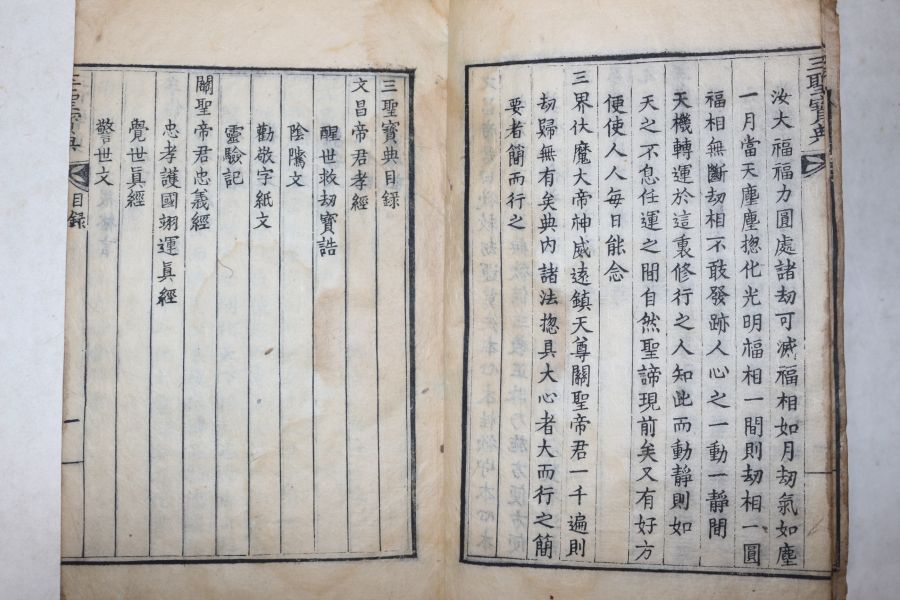 三聖寶典
汝大福福力圓處諸劫可滅福相如月劫氣如塵
一月當天塵塵揔化光明福相一間則劫相一圓
福相無斷劫相不敢發跡人心之一動一靜間
天機轉運於這裏修行之人知此而動靜則如
天之不息任運之間自然聖諦現前矣又有好方
便使人人每日能念
三界伏魔大帝神威遠鎮天尊關聖帝君一千遍則
劫歸無有矣典內諸法揔具大心者大而行之簡
要者簡而行之
三聖寶典目録
文昌帝君孝經
醒世救劫寶誥
陰隲文
勸敬字紙文
靈驗記
關聖帝君忠義經
忠孝護國翊運眞經
覺世眞經
警世文
三聖寶典 目録 一